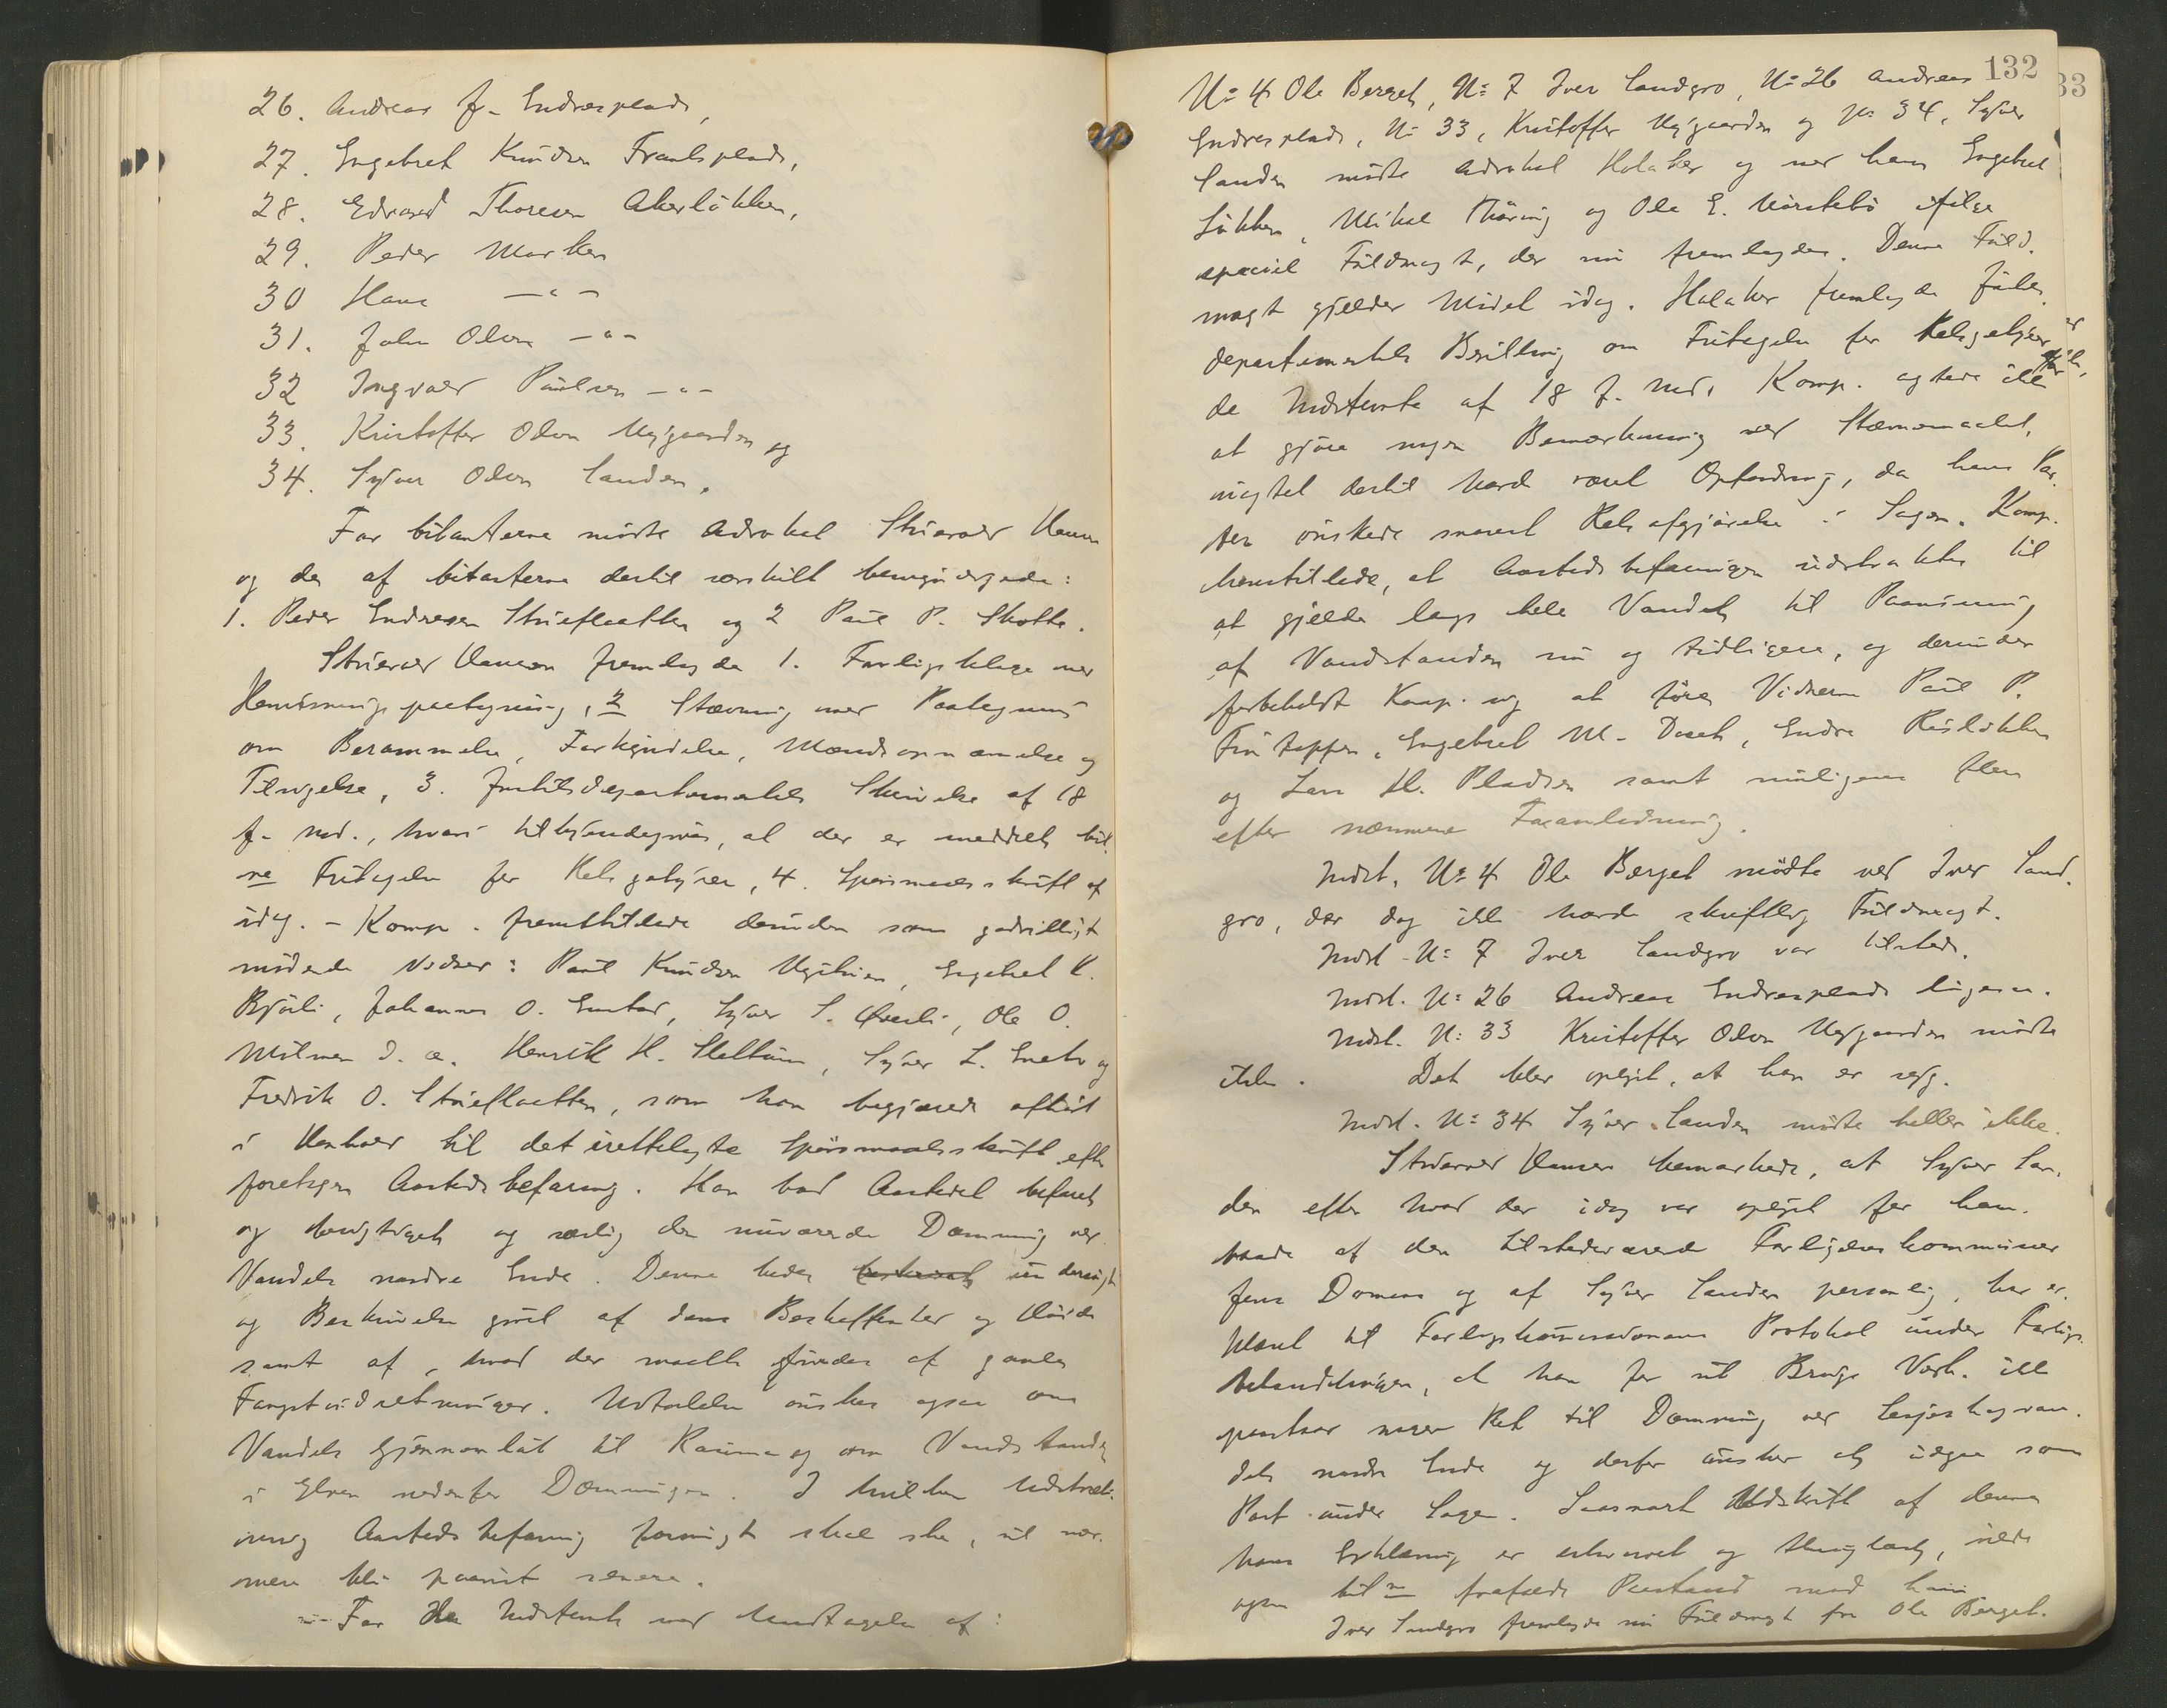 26. Andreas J. Endresplads,
27. Engebret Knudsen Frantsplads,
28. Edvard Thoresen Akerløkken,
29. Peder Marken
30 Hans —"—
31. John Olsen —"—
32 Ingvald Paulsen —"—
33. Kristoffer Olsen Nygaarden og
34. Syver Olsen Sanden.
For Citanterne mødte Advokat Stuevold Hansen
og de af Citanterne dertil særskilt bemyndigede:
1. Peder Endresen Stueflaatten og 2 Paul P. Skotte.
Stuevold Hansen fremlagde 1. Forligsklage med
Henvisningspaategning, 2 Stævning med Paategning
om Berammelse, Forkyndelse, Mændsopnævnelse og
Tilsigelse, 3. Justitsdepartementets Skrivelse af 18
f. Md., hvori tilkjendegives, at der er meddelt Cit.
ne Fritagelse for Retsgebyrer, 4. Spørsmaalsskrift af
idag. – Komp. fremstillede desuden som godvilligt
mødende Vidner: Paul Knudsen Nystuen, Engebret K.
Bjørli, Johannes O. Enstad, Syver S. Øverli, Ole O.
Mølmen d. æ. Henrik H. Sletten, Syver L. Enebo og
Fredrik O. Stueflaatten, som han begjærede afhørt
i Henhold til det irettelagte Spørsmaalsskrift efter
foretagen Aastedsbefaring. Han bad Aastedet befaret
og besigtiget og særlig den nuværende Dæmning ved
Vandets nordre Ende. Denne bedes undersøgt
og Beskrivelse givet af dens Beskaffenhed og Høide
samt af, hvad der maatte findes af gamle
Fangstindretninger. Udtalelse ønskes ogsaa om
Vandets Gjennemløb til Rauma og om Vandstanden
i Elven nedenfor Dæmningen. I hvilken Udstræk-
ning Aastedsbefaring forøvrigt skal ske, vil nær-
mere bli paavist senere.
For de Indstevnte med Undtagelse af:
132
No 4 Ole Berget, No 7 Iver Sandgro, No 26 Andreas
Endresplads, No 33, Kristoffer Nygaarden og No 34, Syver
Sanden mødte Advokat Holaker og med ham Engebret
Løkken, Mikal Thøring og Ole E. Nørstebø ifølge
speciel Fuldmagt, der nu fremlagdes. Denne Fuld-
magt gjælder Mødet idag. Holaker fremlagde Justits-
departementets Bevilling om Fritagelse for Retsgebyrer for
de Indstevnte af 18 f. Md. Komp. agtede ikke
at gjøre nogen Bemærkning ved Stævnemaalet,
uagtet dertil havde været Opfordring, da hans Par-
ter ønskede snarest Retsafgjørelse i Sagen. Komp.
henstillede, at Aastedsbefaringen udstrakkes til
at gjælde langs hele Vandet til Paavisning
af Vandstanden nu og tidligere, og derunder
forbeholdt Komp. sig at føre Vidnerne Paul P.
Tøftappen, Engebret M. Doset, Endre Rusløkken
og Lars H. Pladsen samt muligens flere
efter nærmere Foranledning.
Indst. No 4 Ole Berget mødte ved Iver Sand-
gro, der dog ikke havde skriftlig Fuldmagt.
Indst. No 7 Iver Sandgro var tilstede.
Indst. No 26 Andreas Endresplads ligesaa.
Indst. No 33 Kristoffer Olsen Nygaarden mødte
ikke. Det blev oplyst, at han er syg.
Indst. No 34 Syver Sanden mødte heller ikke.
Stuevold Hansen bemærkede, at Syver San-
den efter hvad der idag var oplyst for ham
baade af den tilstedeværende Forligelseskommissær
Jens Domaas og af Syver Sanden personlig, har er-
klæret til Forligskommissionens Protokol under Forligs-
behandlingen, at han for sit Brugs Vedk. ikke
paastaar nogen Ret til Dæmning ved Lesjeskogsvan-
dets nordre Ende og derfor ønsker at udgaa som
Part under Sagen. Saasnart Udskrift af denne
hans Erklæring er erhvervet og fremlagt, vilde
ogsaa Citne frafalde Paastand mod ham
Iver Sandgro fremlagde nu Fuldmagt fra Ole Berget.